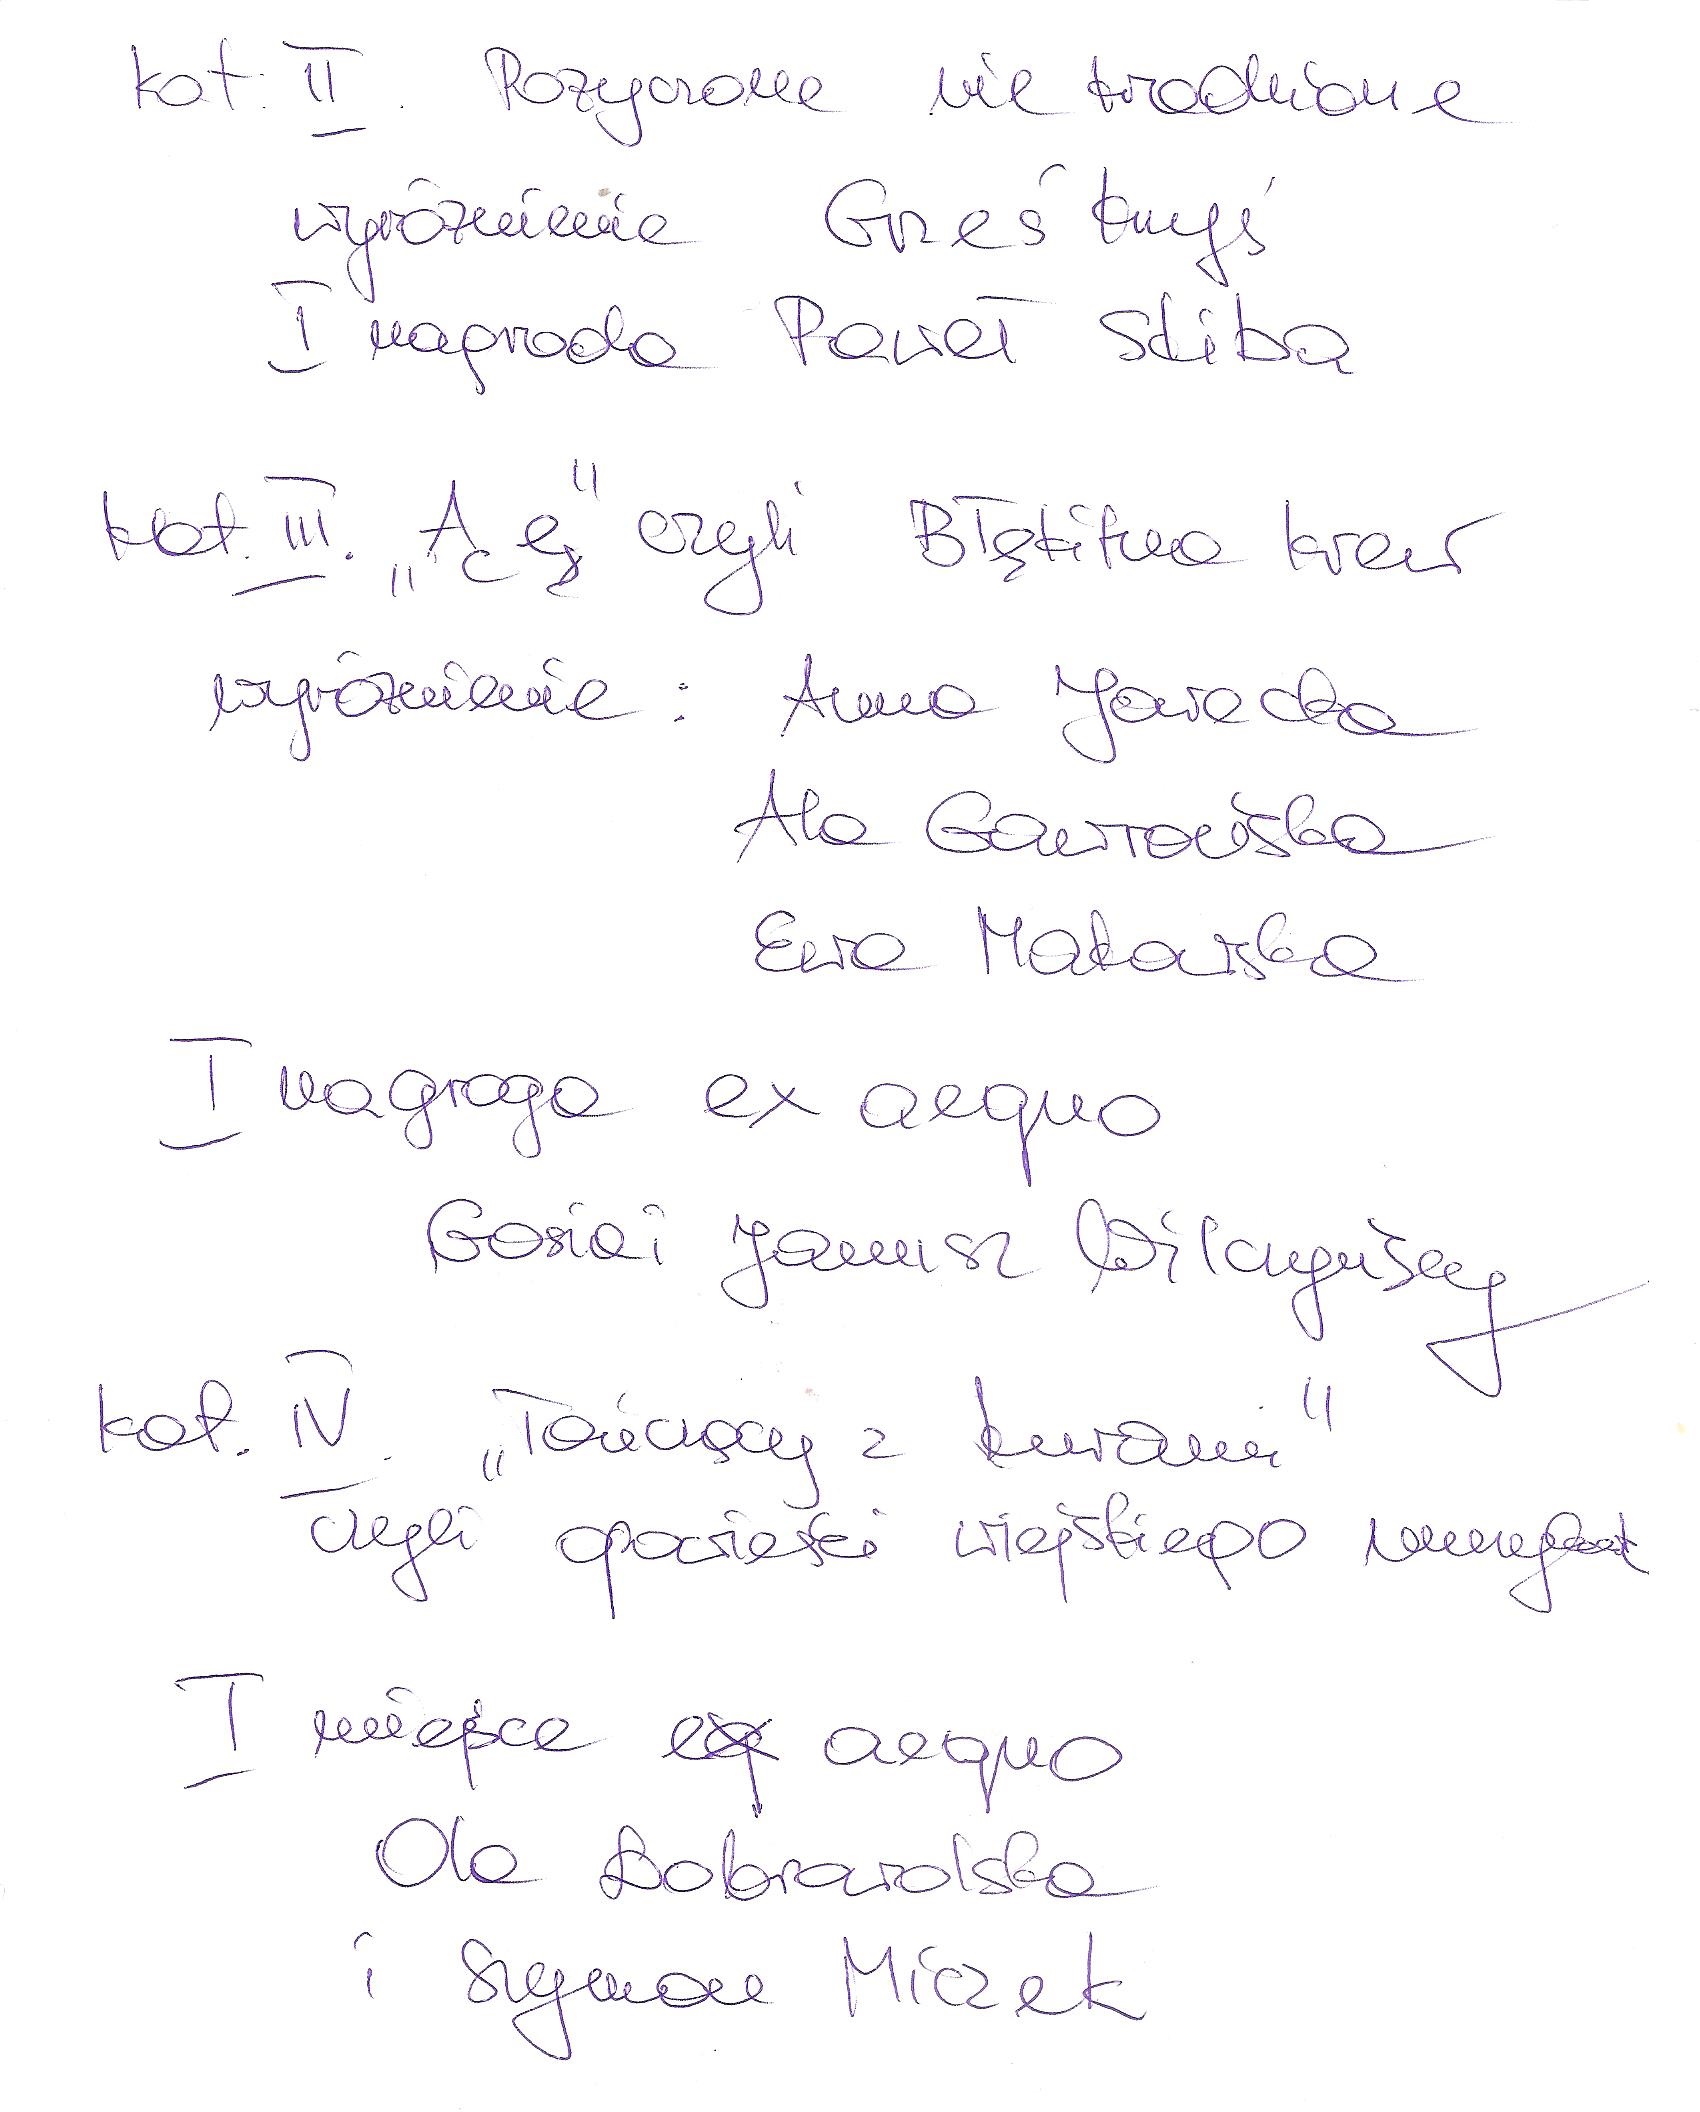 kat. II. Pożyczone nie kradzione
wyróżnienie Grześ
I nagroda Paweł Skiba
kat. III. „Ą ę" czyli Błękitna krew
wyróżnienie: Anna Jarecka
Ala Gawrońska
Ewa Makarska
I nagroga ex aequo
Gosia i Janusz
kat. IV. „Tańczący z kurami"
czyli opowieści wiejskiego
I miejsce ex aequo
Ola Dobrowolska
i Szymon Miczek